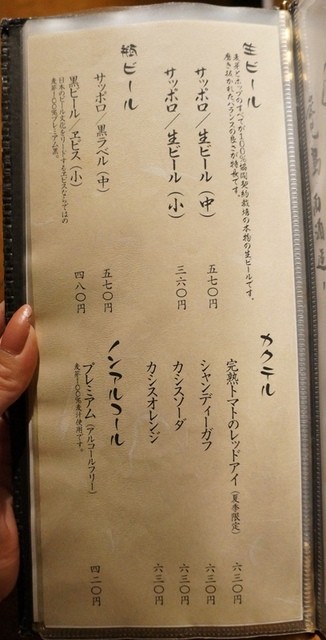 生ビール
麦芽とホップのすべてが100%協働契約栽培の本物の生ビールです。
磨き抜かれたバランスの良さが特長です。
サッポロ/生ビール(中) 五七〇円
サッポロ/生ビール(小) 三六〇円
瓶ビール
サッポロ/黒ラベル(中) 五七〇円
黒ビール/ヱビス(小) 四八〇円
日本のビール文化をリードするヱビスならではの
麦芽100%プレミアム黒。
カクテル
完熟トマトのレッドアイ(夏季限定) 六三〇円
シャンディーガフ 六三〇円
カシスソーダ 六三〇円
カシスオレンジ 六三〇円
ノンアルコール
プレミアム(アルコールフリー) 四二〇円
麦芽100%麦汁使用です。